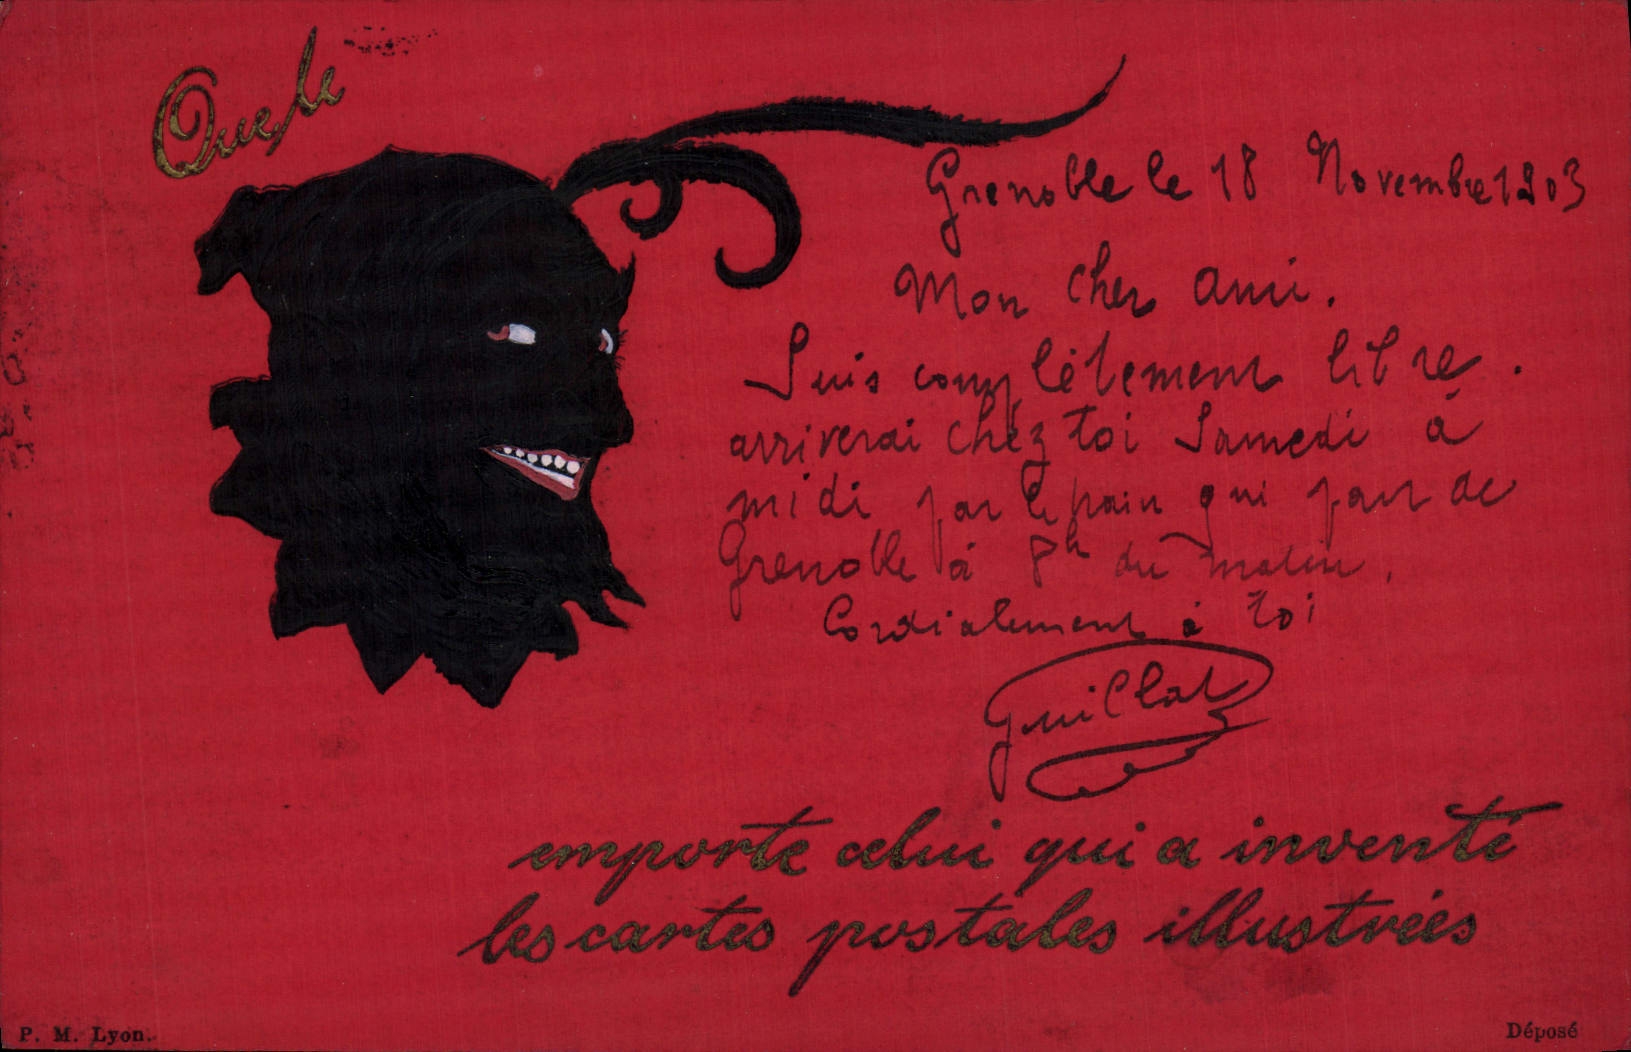 Que le
Grenoble le 18 Novembre 1903
Mon cher ami.
Suis complètement libre.
arriverai chez toi Samedi à
midi par le train qui part de
Grenoble à 8h du matin.
Cordialement à toi
Guillat
emporte celui qui a inventé
les cartes postales illustrées
P. M. Lyon.
Déposé